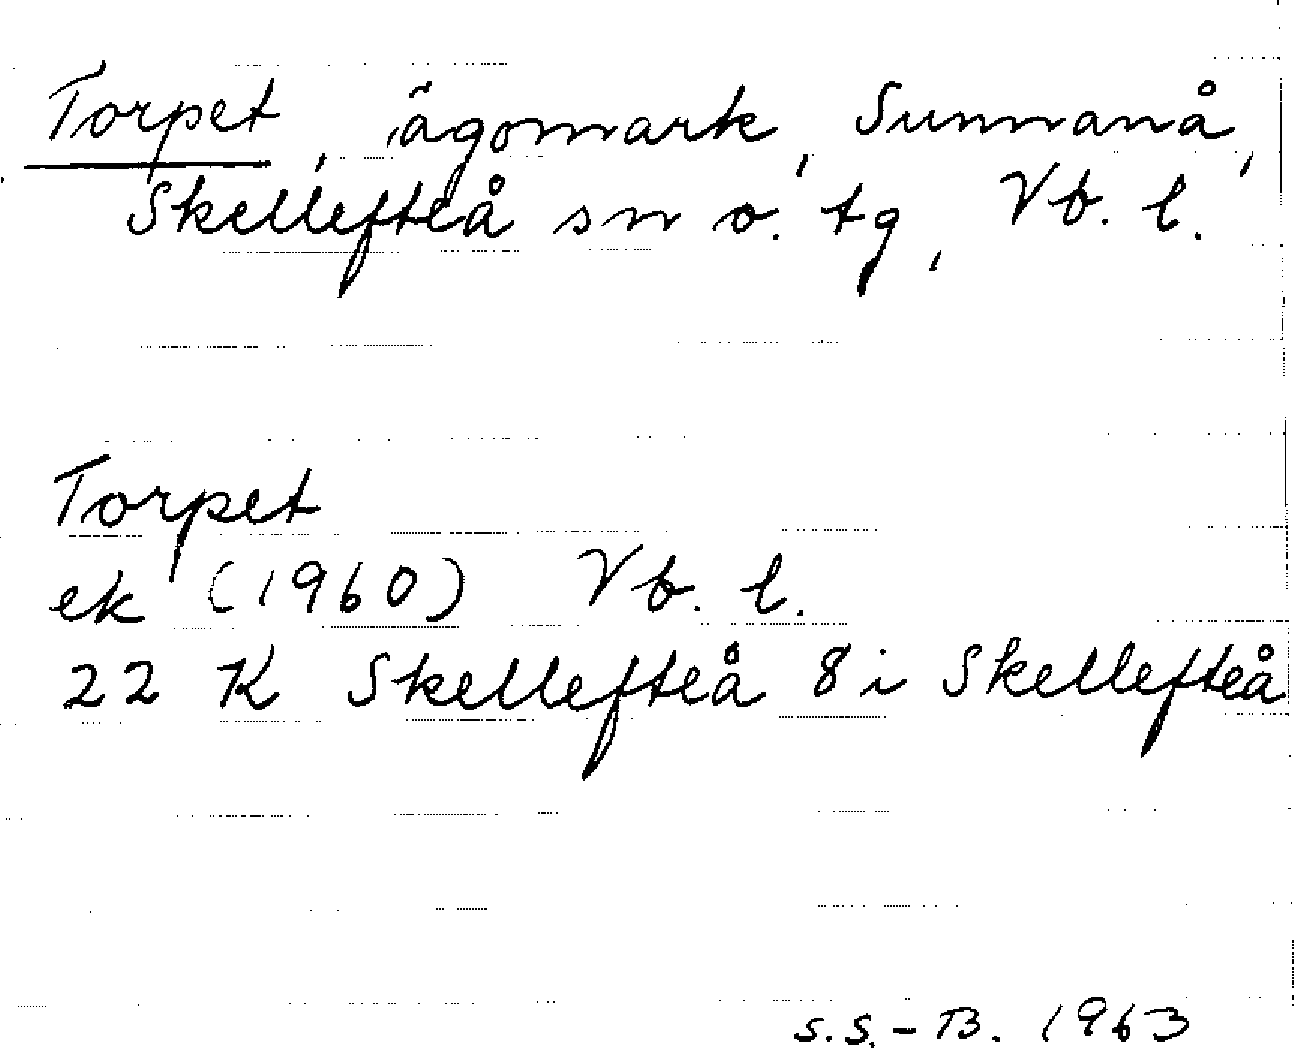 Torpet, ägomark, Sunnanå,
Skellefteå sn o. tg, Vb. l.
Torpet
ek (1960) Vb. l.
22 K Skellefteå 8 i Skellefteå
S.S.-B. 1963